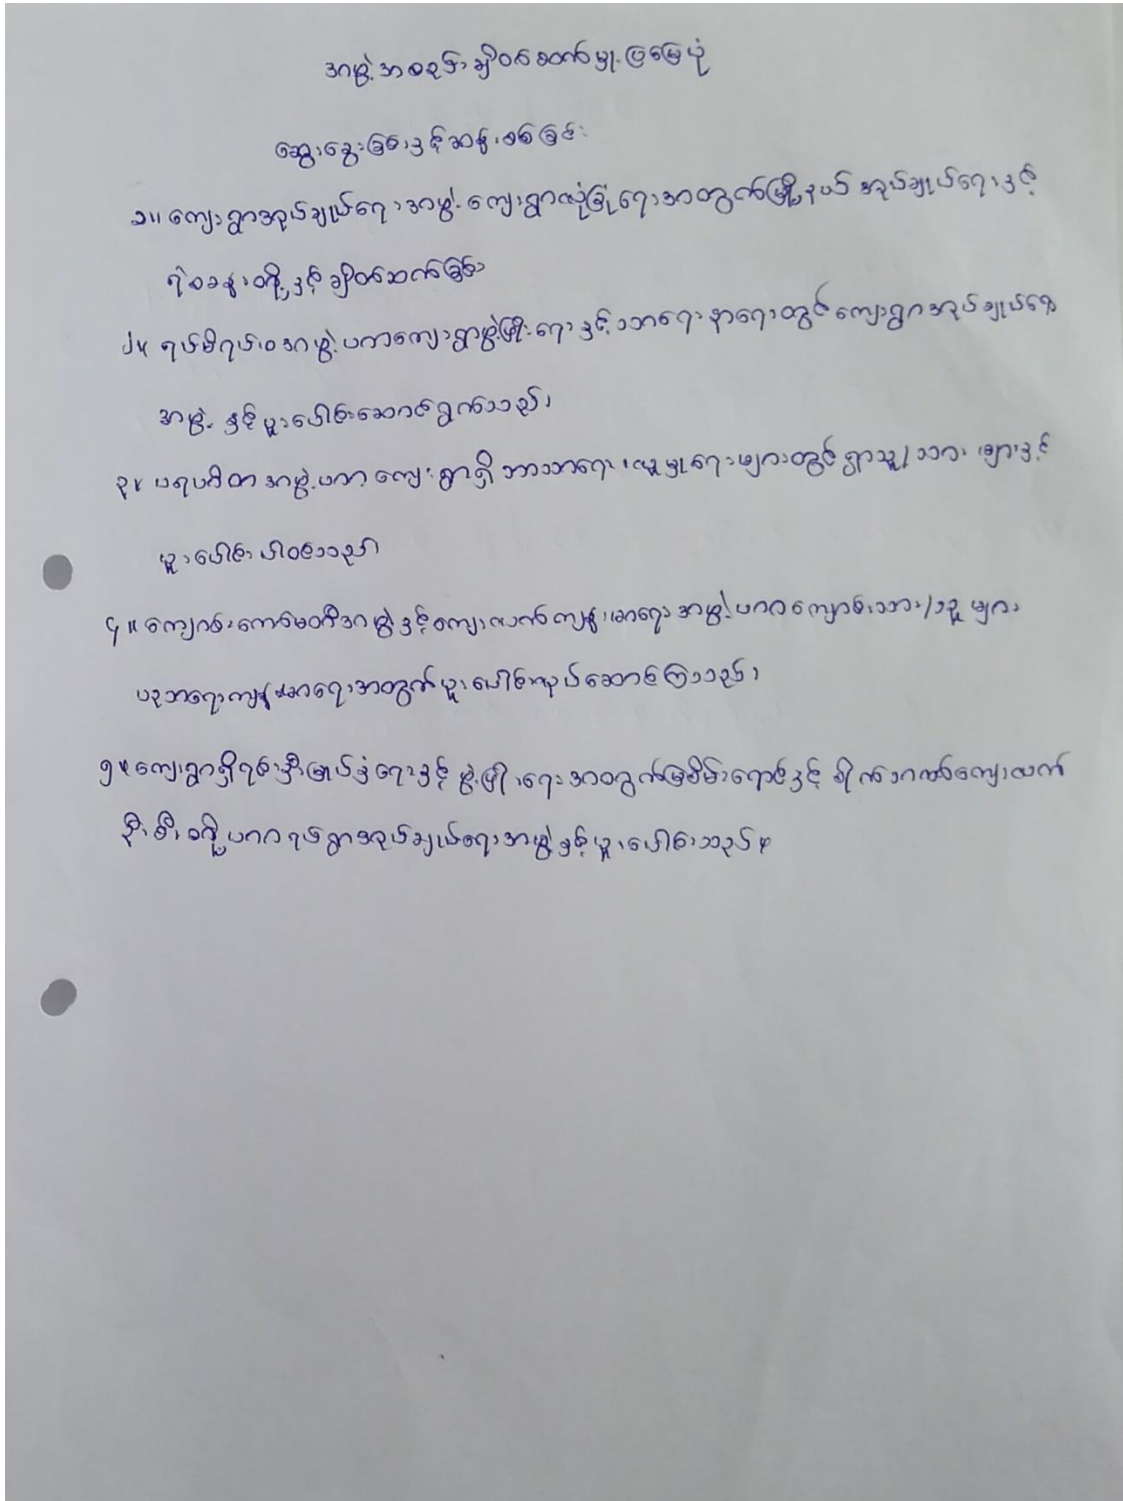 အဖွဲ့အစည်းချိတ်ဆက်မှုပြမြေပုံ
ဆွေးနွေးခြင်းနှင့်ဆန်းစစ်ခြင်း
၁။ ကျေးရွာအုပ်ချုပ်ရေးအဖွဲ့ ကျေးရွာလုံခြုံရေးအတွက်မြို့နယ် အုပ်ချုပ်ရေးနှင့်
ရဲစခန်းတို့နှင့်ချိတ်ဆက်ခြင်း
၂။ ရပ်မိရပ်ဖအဖွဲ့မှာကျေးရွာဖွံ့ဖြိုးရေးနှင့်သာရေးနာရေးတွင်ကျေးရွာအုပ်ချုပ်ရေး
အဖွဲ့ နှင့်ပူးပေါင်းဆောင်ရွက်သည်။
၃။ ပရဟိတအဖွဲ့မှာ ကျေးရွာရှိဘာသာရေး၊လူမှုရေးများတွင်ရွာသူ/သား များနှင့်
ပူးပေါင်းပါဝင်သည်။
၄။ ကျောင်းကော်မတီအဖွဲ့နှင့်ကျေးလက်ကျန်းမာရေးအဖွဲ့မှာကျောင်းသား/သူများ
ပညာရေးကျန်းမာရေးအတွက်ပူးပေါင်းလုပ်ဆောင်ကြသည်။
၅။ ကျေးရွာရှိရင်းနှီးမြှုပ်နှံရေးနှင့် ဖွံ့ဖြိုးရေးအတွက်မြစိမ်းရောင်နှင့် စိုက်/ကဏ်ကျေးလက်
ဦးစီးတို့မှာရပ်ရွာအုပ်ချုပ်ရေးအဖွဲ့နှင့်ပူးပေါင်းသည်။